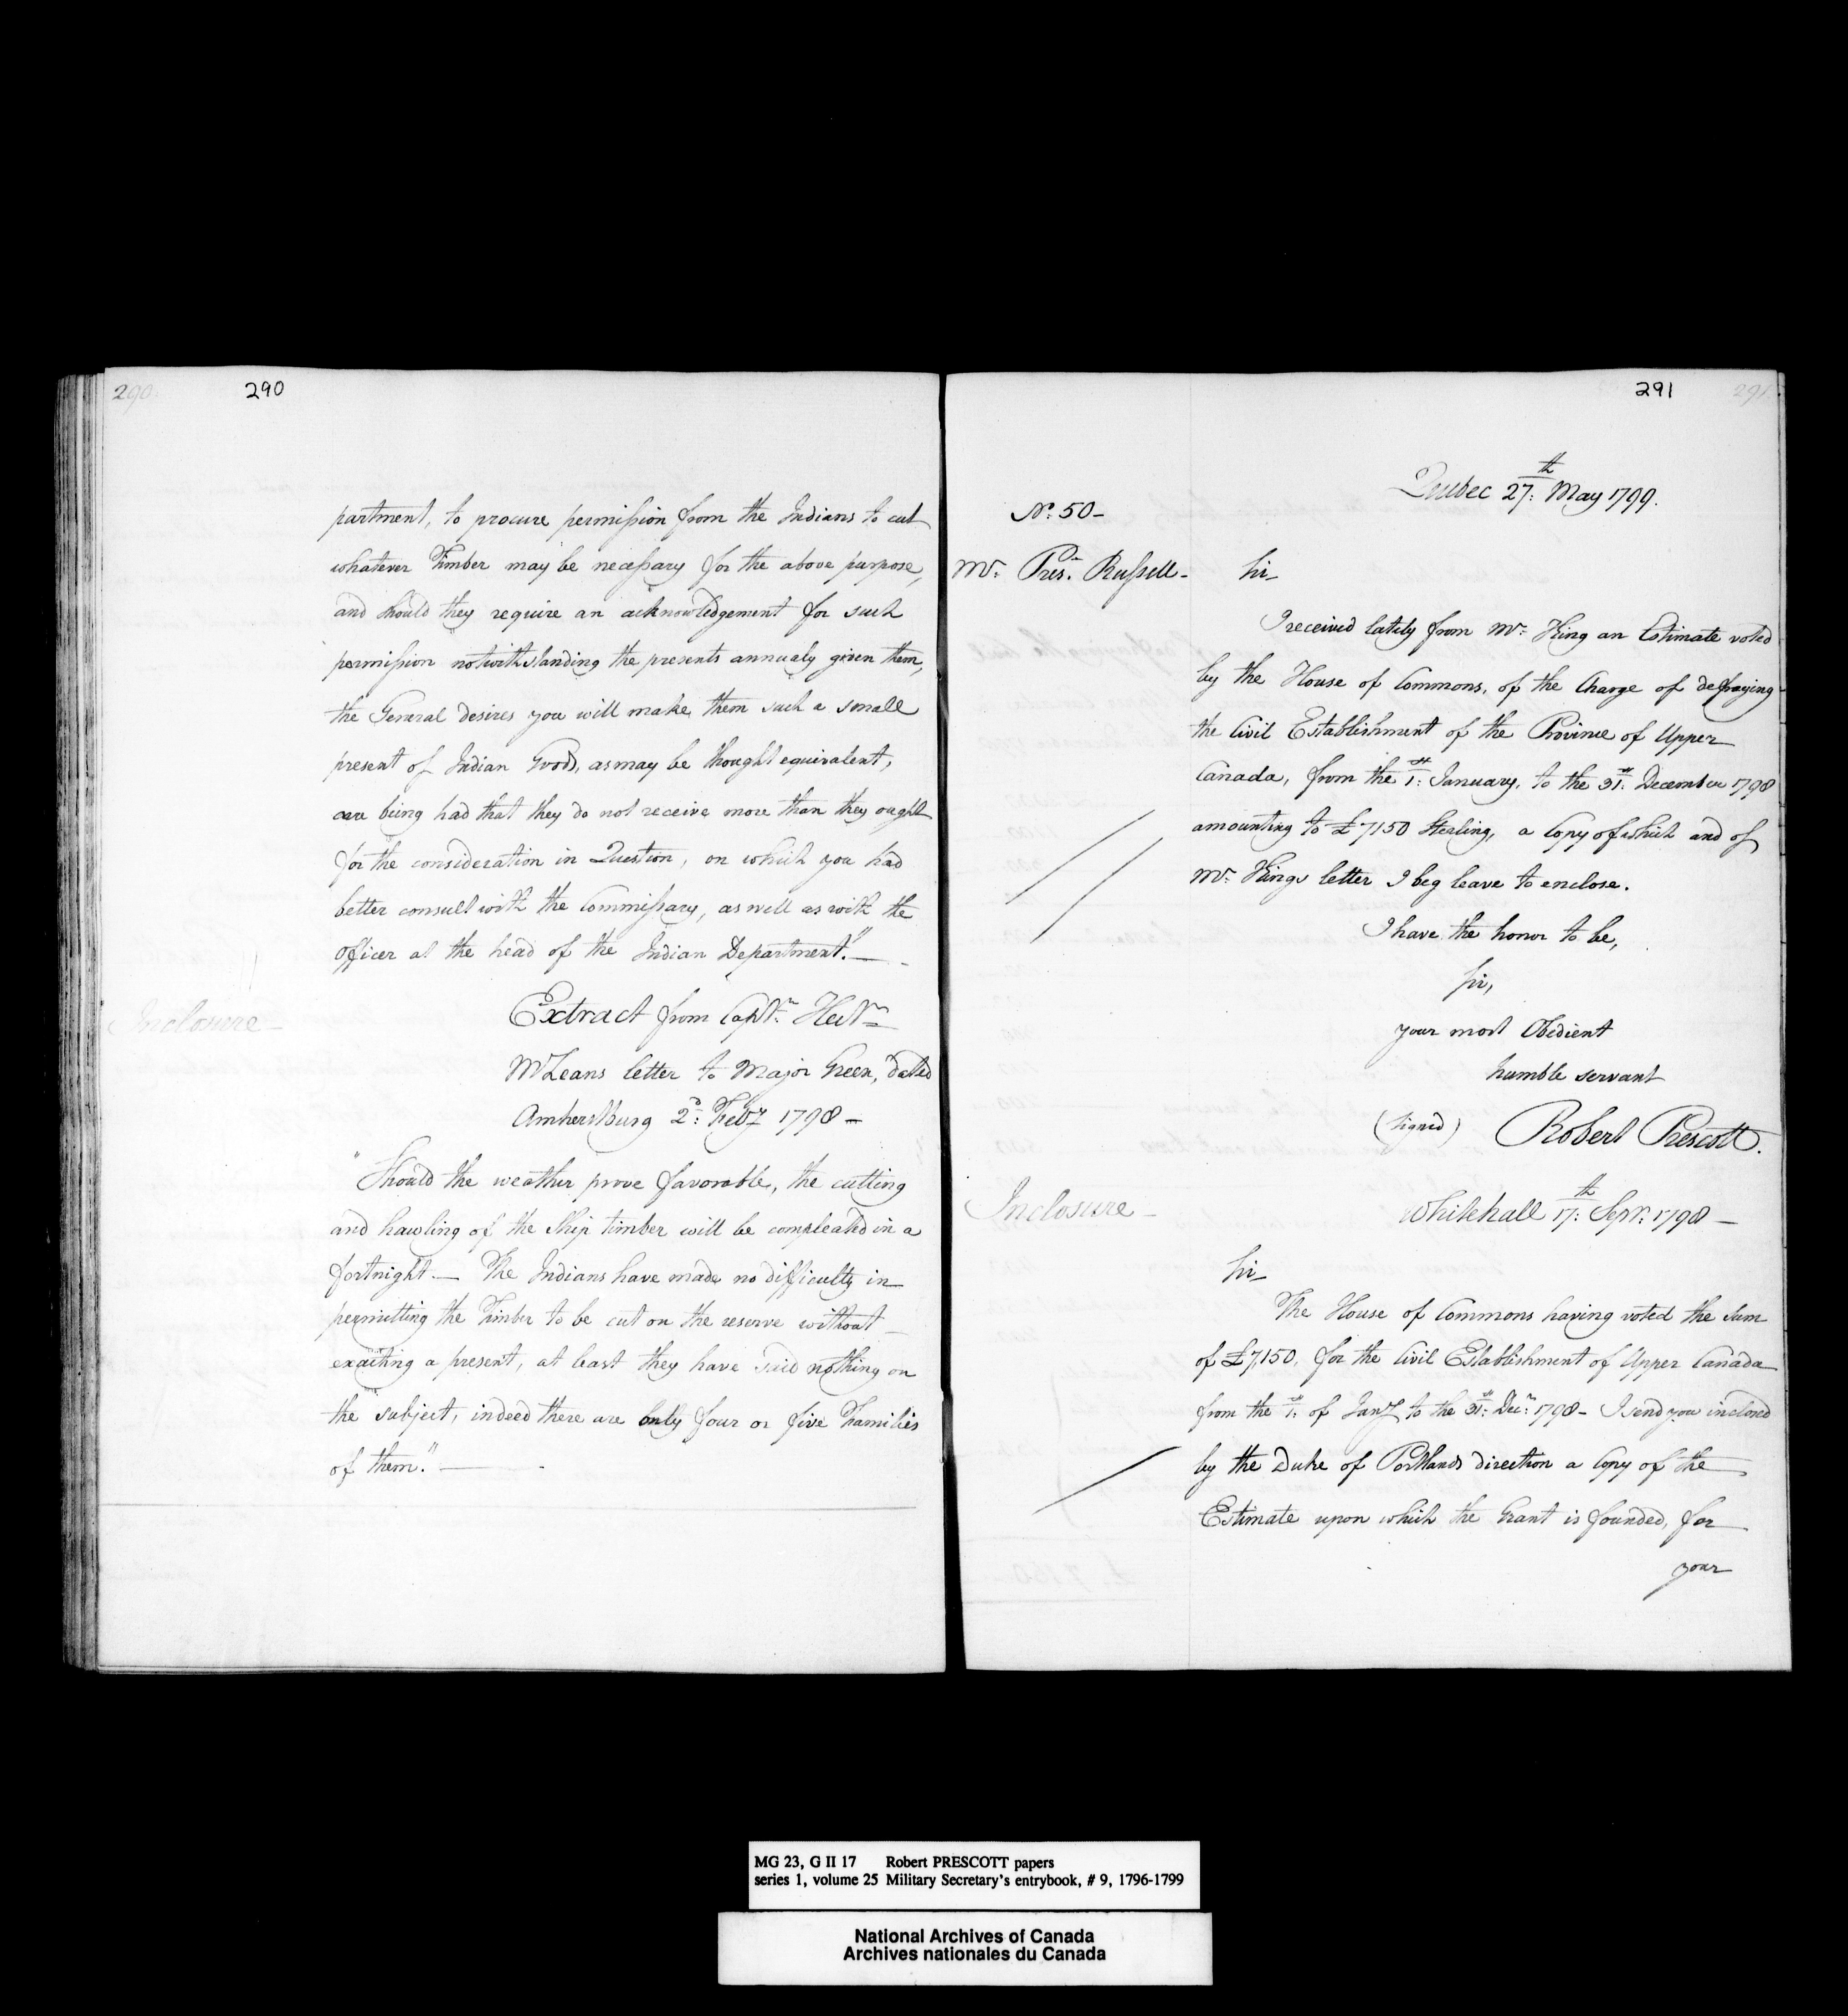 290 290
partment, to procure permission from the Indians to cut
whatever Timber may be necessary for the above purpose,
and should they require an acknowledgement for such
permission notwithstanding the presents annualy given them,
the General desires you will make them such a small
present of Indian Goods, as may be thought equivalent,
care being had that they do not receive more than they ought
for the consideration in Question, on which you had
better consult with the Commissary, as well as with the
officer at the head of the Indian Department."—
Inclosure—
Extract from Captn. Hectr.
McLeans letter to Major Green, dated
Amherstburg 2d: Feby 1798—
"Should the weather prove favorable, the cutting
and hawling of the Ship timber will be compleated in a
fortnight— The Indians have made no difficulty in
permitting the Timber to be cut on the reserve without
exacting a present, at least they have said nothing on
the subject, indeed there are only four or five Families
of them."—
291 291
Quebec 27th: May 1799.
No. 50—
Mr. Prest. Russell—
Sir
I received lately from Mr: King an Estimate voted
by the House of Commons, of the Charge of defraying
the Civil Establishment of the Province of Upper
Canada, from the 1st: January, to the 31st: December 1798
amounting to £7150 Sterling, a Copy of which and of
Mr. Kings letter I beg leave to enclose.
I have the honor to be,
Sir,
your most Obedient
humble servant
(Signed) Robert Prescott.
Inclosure—
Whitehall 17th: Sepr: 1798—
Sir
The House of Commons having voted the Sum
of £7,150, for the Civil Establishment of Upper Canada
from the 1st: of Jany to the 31st: Decr: 1798— I send you inclosed
by the Duke of Portlands direction a Copy of the
Estimate upon which the Grant is founded, for
your
MG 23, G II 17 Robert PRESCOTT papers
series 1, volume 25 Military Secretary's entrybook, # 9, 1796-1799
National Archives of Canada
Archives nationales du Canada